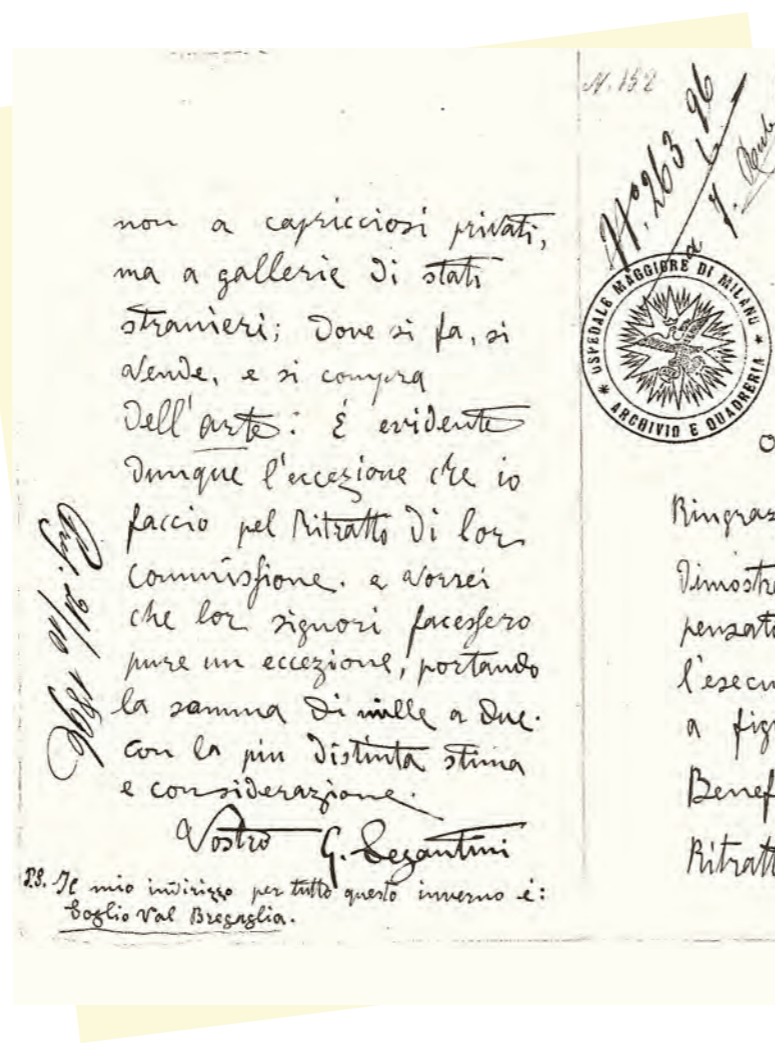 non a capricciosi privati,
ma a gallerie di stati
stranieri; dove si fa, si
vende, e si compra
dell'arte: É evidente
dunque l'eccezione che io
faccio pel Ritratto di lor
commissione. e vorrei
che lor signori facessero
pure un eccezione, portando
la somma di mille a due.
con la piu distinta stima
e considerazione.
Vostro G. Segantini
P.S. Il mio indirizzo per tutto questo inverno é:
Soglio Val Bregaglia.
1896
N. 152
N° 263 96
OSPEDALE MAGGIORE DI MILANO
ARCHIVIO E QUADRERIA
O
Ringraz
dimostr
pensato
l'esecu
a fig
Benef
Ritratt